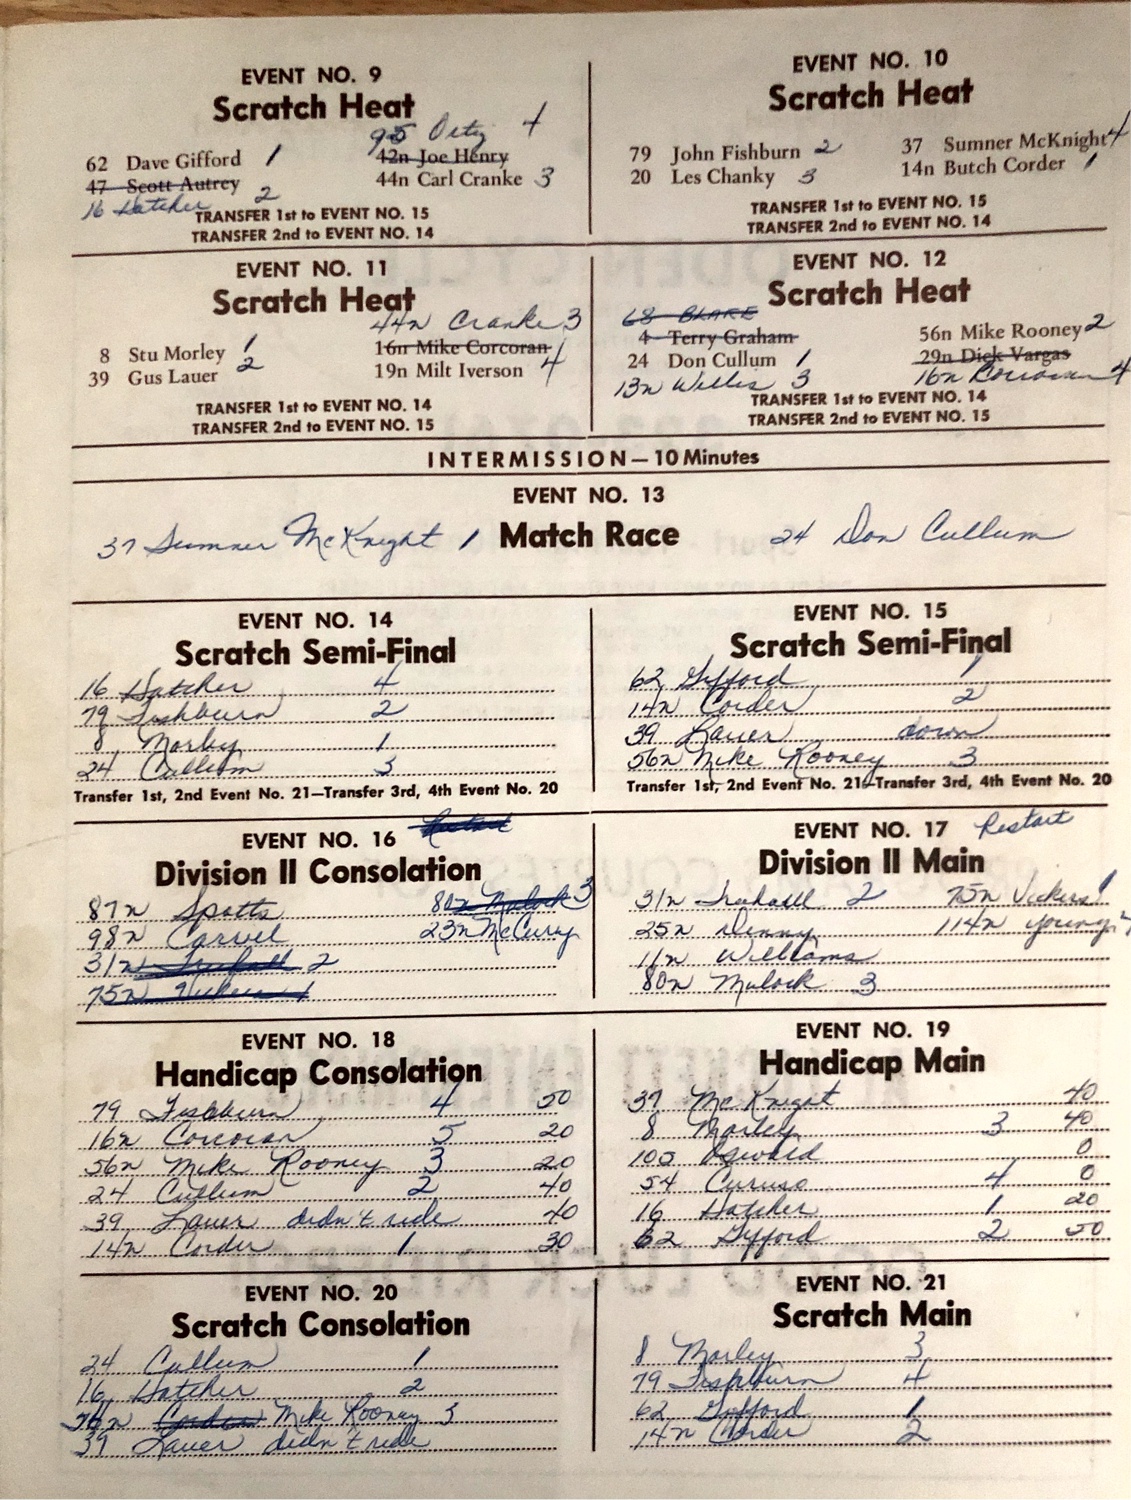 EVENT NO. 9
Scratch Heat
95 Ortiz 4
62 Dave Gifford 1
42n Joe Henry
47 Scott Autrey
44n Carl Cranke 3
16 Hatcher 2
TRANSFER 1st to EVENT NO. 15
TRANSFER 2nd to EVENT NO. 14
EVENT NO. 10
Scratch Heat
79 John Fishburn 2
37 Sumner McKnight 4
20 Les Chanky 3
14n Butch Corder 1
TRANSFER 1st to EVENT NO. 15
TRANSFER 2nd to EVENT NO. 14
EVENT NO. 11
Scratch Heat
44n Cranke 3
8 Stu Morley 1
16n Mike Corcoran
39 Gus Lauer 2
19n Milt Iverson 4
TRANSFER 1st to EVENT NO. 14
TRANSFER 2nd to EVENT NO. 15
EVENT NO. 12
Scratch Heat
68 BLAKE
4 Terry Graham
56n Mike Rooney 2
24 Don Cullum 1
29n Dick Vargas
13n Willis 3
16n Corcoran 4
TRANSFER 1st to EVENT NO. 14
TRANSFER 2nd to EVENT NO. 15
INTERMISSION—10 Minutes
EVENT NO. 13
37 Sumner McKnight 1 Match Race 24 Don Cullum
EVENT NO. 14
Scratch Semi-Final
16 Hatcher 4
79 Fishburn 2
8 Morley 1
24 Cullum 3
Transfer 1st, 2nd Event No. 21—Transfer 3rd, 4th Event No. 20
EVENT NO. 15
Scratch Semi-Final
62 Gifford 1
14n Corder 2
39 Lauer down
56n Mike Rooney 3
Transfer 1st, 2nd Event No. 21—Transfer 3rd, 4th Event No. 20
EVENT NO. 16
Division II Consolation
87n Spotts
80n Mulock 3
98n Carvel
23n McCurry
31n 2
75n Vickers 1
EVENT NO. 17 Restart
Division II Main
31n 2
75n Vickers 1
25n Denny
114n Young 4
11n Williams
80n Mulock 3
EVENT NO. 18
Handicap Consolation
79 Fishburn 4 50
16n Corcoran 5 20
56n Mike Rooney 3 20
24 Cullum 2 40
39 Lauer didn't ride 40
14n Corder 1 30
EVENT NO. 19
Handicap Main
37 McKnight 40
8 Morley 3 40
105 Oswald 0
54 Caruso 4 0
16 Hatcher 1 20
62 Gifford 2 50
EVENT NO. 20
Scratch Consolation
24 Cullum 1
16 Hatcher 2
56n Corder Mike Rooney 3
39 Lauer didn't ride
EVENT NO. 21
Scratch Main
8 Morley 3
79 Fishburn 4
62 Gifford 1
14n Corder 2